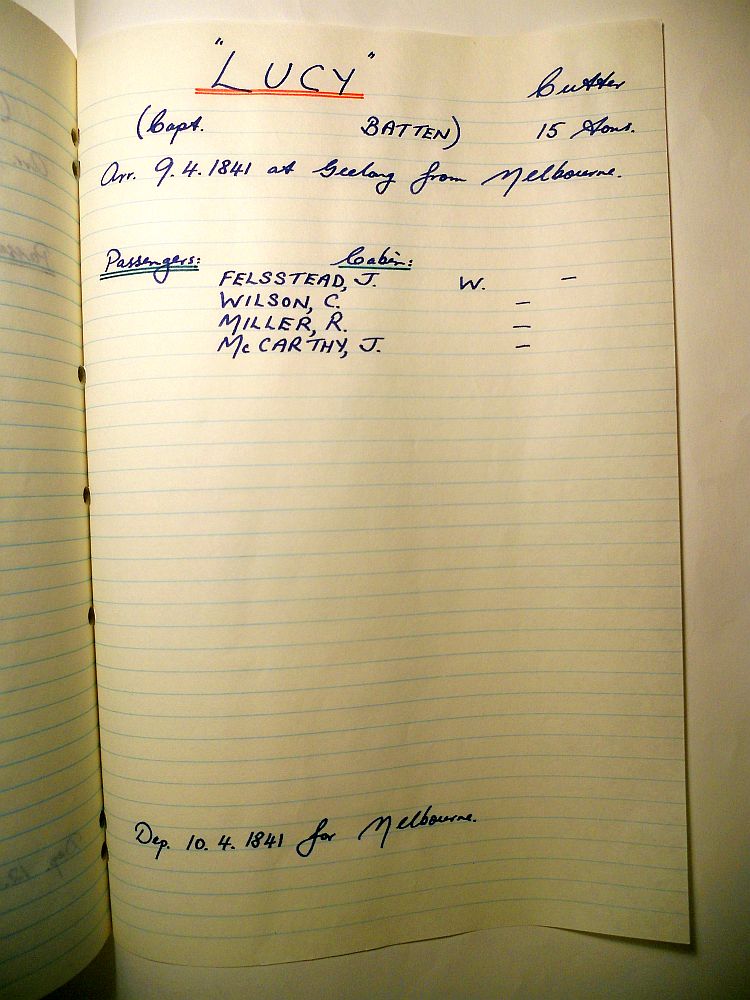 "LUCY" Cutter
(Capt. BATTEN) 15 tons.
Arr. 9.4.1841 at Geelong from Melbourne.
Passengers: Cabin:
FELSSTEAD, J. W. –
WILSON, C. –
MILLER, R. –
McCARTHY, J. –
Dep. 10.4.1841 for Melbourne.